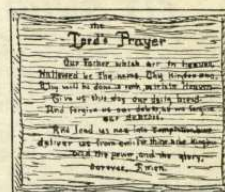 The
Lord's Prayer
Our Father which art in heaven,
Hallowed be Thy name. Thy Kingdom
Thy will be done in earth, as it is in Heaven.
Give us this day our daily bread.
And forgive us our debts as we forgive
our debtors.
And lead us not into temptation, but
deliver us from evil: for thine is the Kingdom
and the power, and the glory,
forever, Amen.